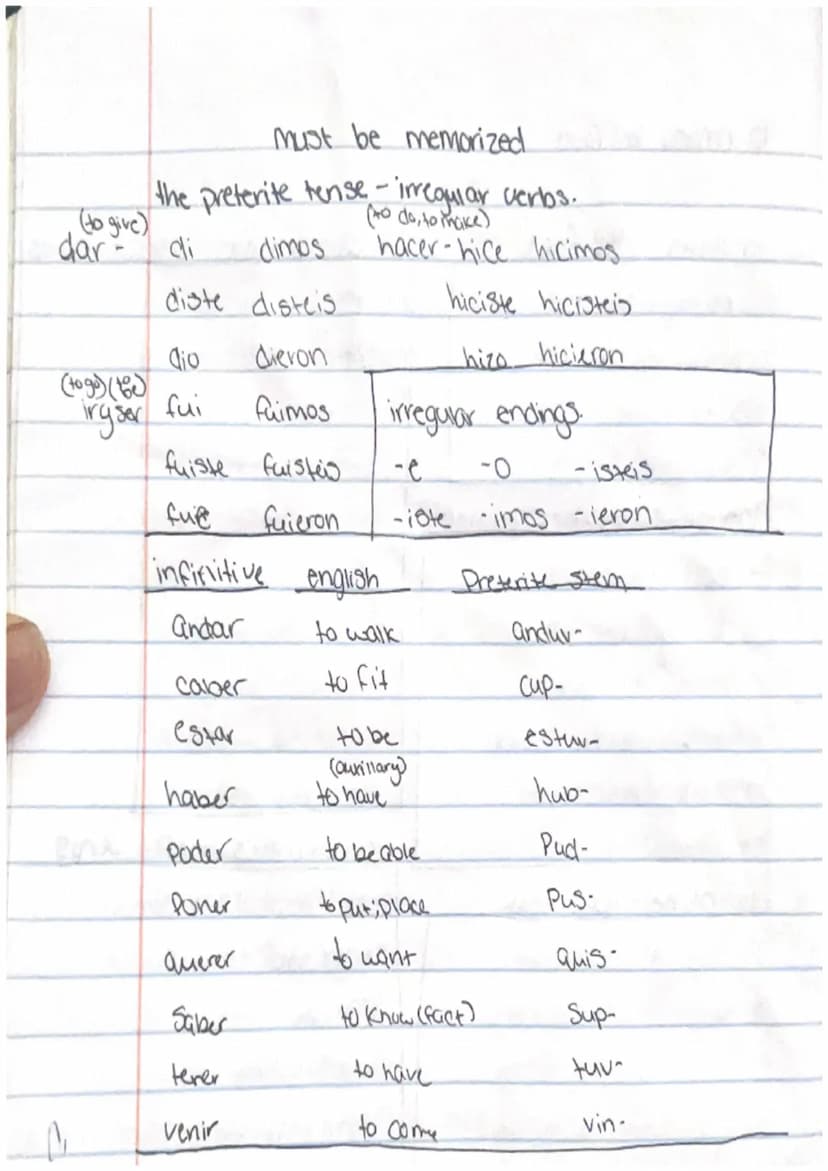 must be memorized
the preterite tense - irregular verbs.
(to give) (to do, to make)
dar - di dimos hacer - hice hicimos
diste disteis hiciste hicisteis
dio dieron hizo hicieron
(to go) (to be)
ir y ser fui fuimos irregular endings.
fuiste fuisteis -e -o -isteis
fue fuieron -iste -imos -ieron
infinitive english Preterite stem
andar to walk anduv-
caber to fit cup-
estar to be estuv-
(auxillary)
haber to have hub-
Poder to be able Pud-
Poner to put; place Pus-
querer to want quis-
Saber to know (fact) Sup-
tener to have tuv-
venir to come vin-